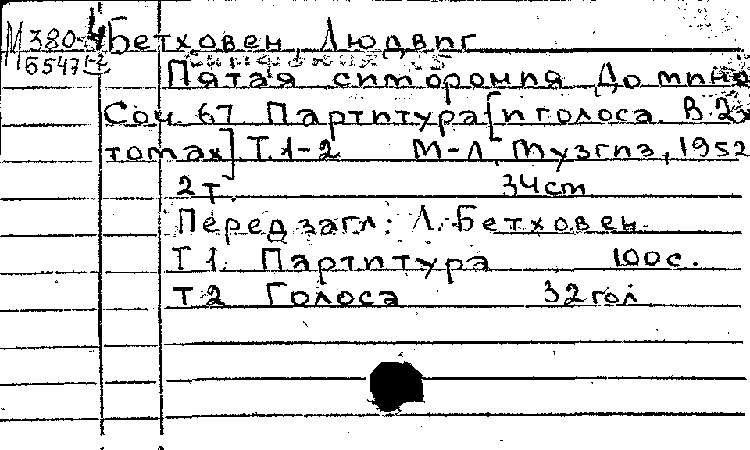 М380-4 Бетховен, Людвиг
Б547 1-2 Симфония №5
Пятая симфония До мино
Соч. 67. Партитура [и голоса. В 2х
томах]. Т. 1-2 М-Л, Музгиз, 1952
2 т. 34 cm
Перед загл: Л. Бетховен.
Т 1. Партитура 100 с.
Т 2 Голоса 32 гол